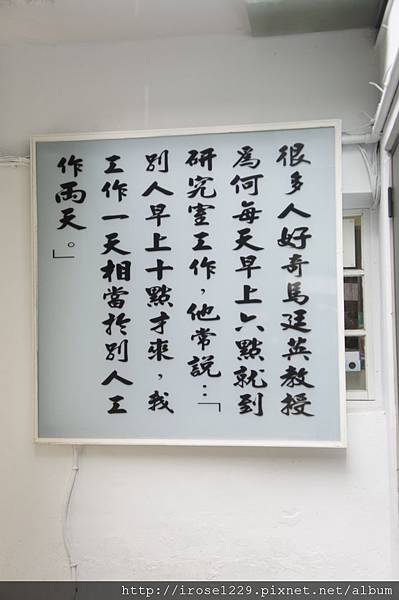 很多人好奇馬廷英教授
為何每天早上六點就到
研究室工作，他常說：「
別人早上十點才來，我
工作一天相當於別人工
作兩天。」
http://irose1229.pixnet.net/album